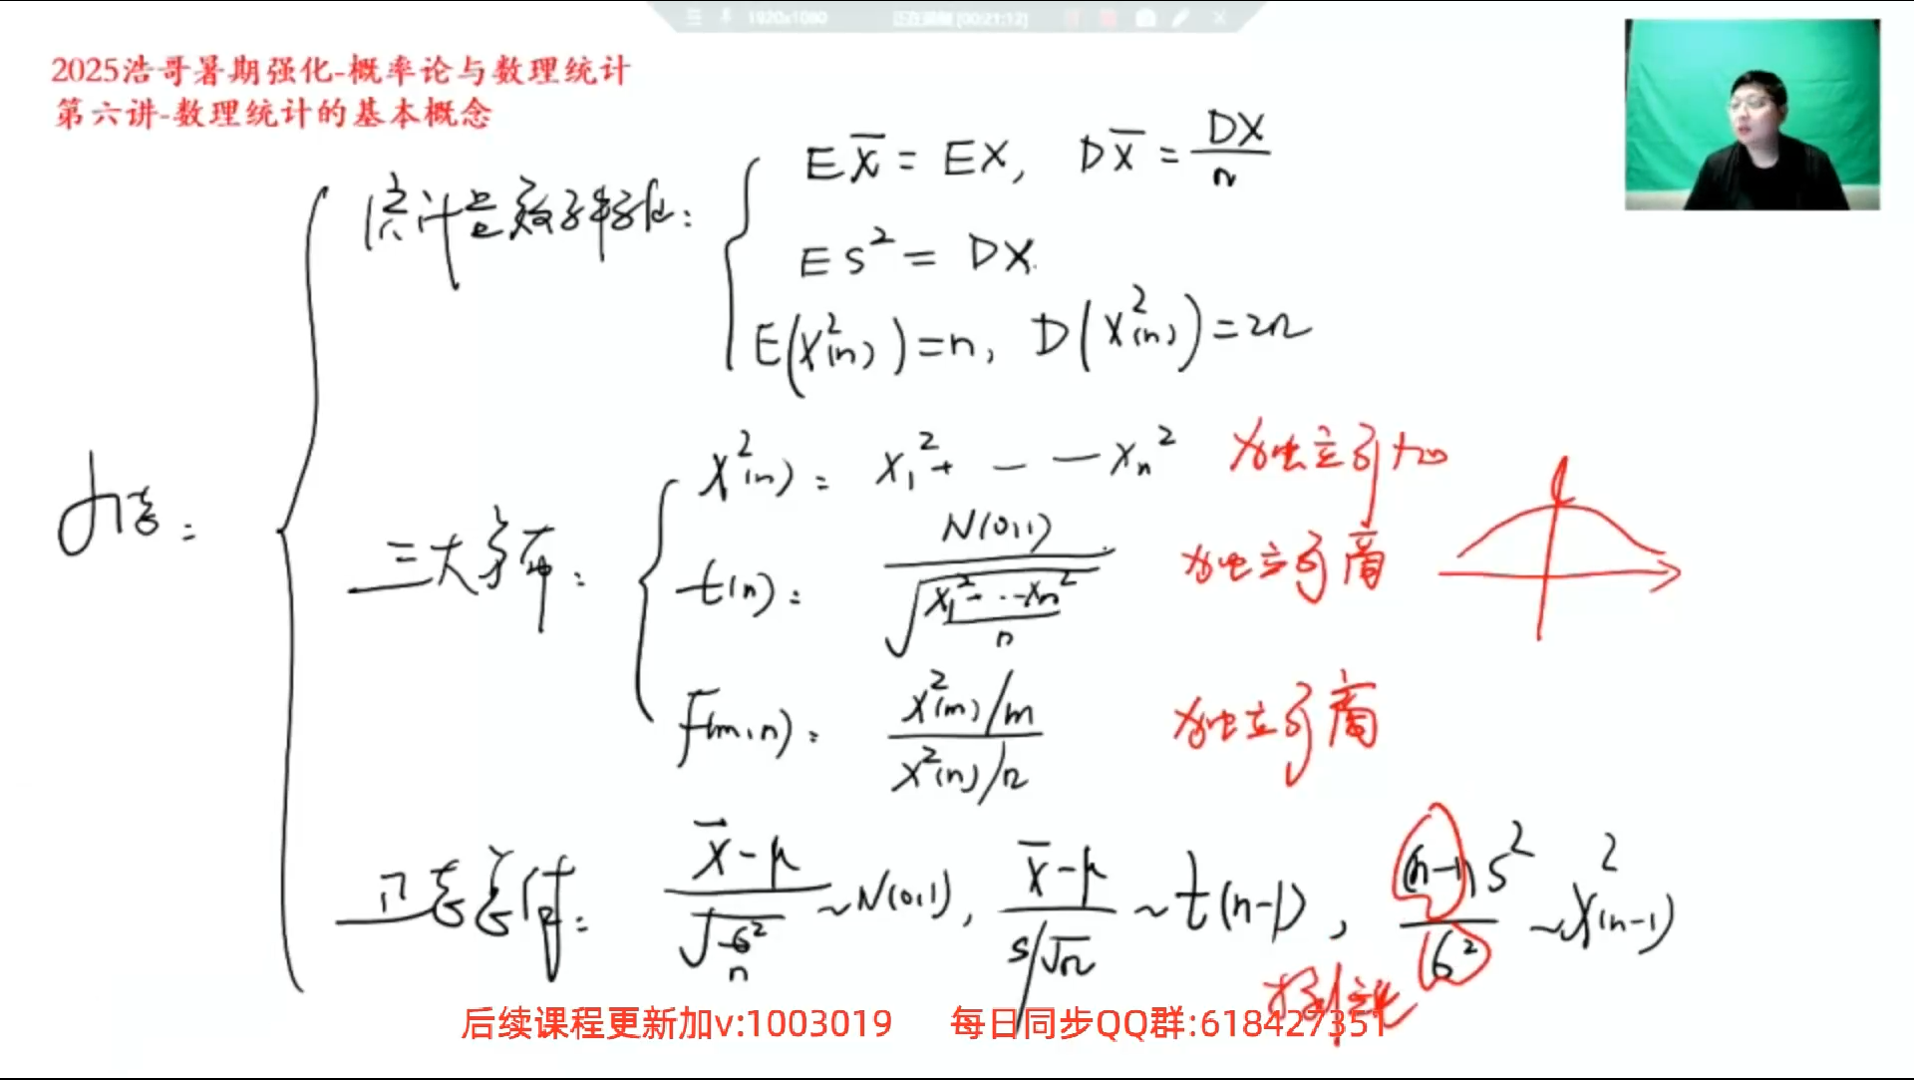 1920x1080 正在录制 [00:21:12]
2025浩哥暑期强化-概率论与数理统计
第六讲-数理统计的基本概念
统计量数字特征: EX̄ = EX, DX̄ = DX/n
ES² = DX.
E(χ²(n)) = n, D(χ²(n)) = 2n
χ²(n): X₁² + - - Xₙ²
三大分布: t(n): N(0,1) / √(X₁²+···Xₙ² / n) 为独立了商
F(m,n): χ²(m)/m / χ²(n)/n 为独立了商
正态总体: X̄-μ / √(σ²/n) ~ N(0,1), X̄-μ / S/√n ~ t(n-1), (n-1)S² / σ² ~ χ²(n-1)
后续课程更新加v:1003019 每日同步QQ群:618427351